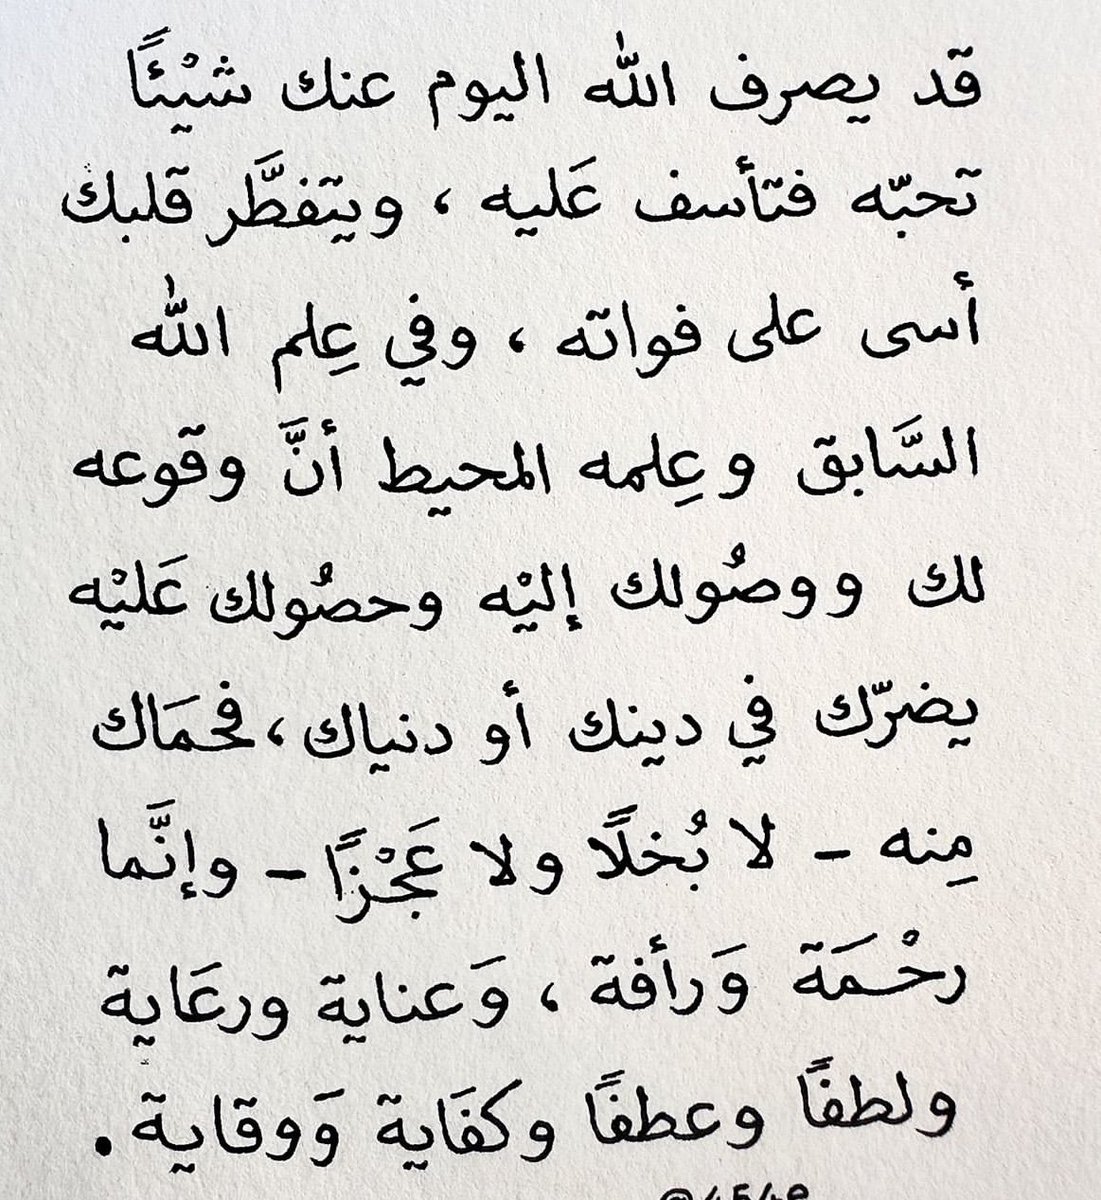 قد يصرف الله اليوم عنك شيْئًا
تحبّه فتأسف عَليه ، ويتفطَّر قلبك
أسى على فواته ، وفي عِلم الله
السَّابق وعِلمه المحيط أنَّ وقوعه
لك ووصُولك إليْه وحصُولك عَليْه
يضرّك في دينك أو دنياك ، فحمَاك
مِنه - لا بُخلًا ولا عَجْزًا - وإنَّما
رحْمَة وَرأفة ، وَعناية ورعَاية
ولطفًا وعطفًا وكفَاية وَوقاية .